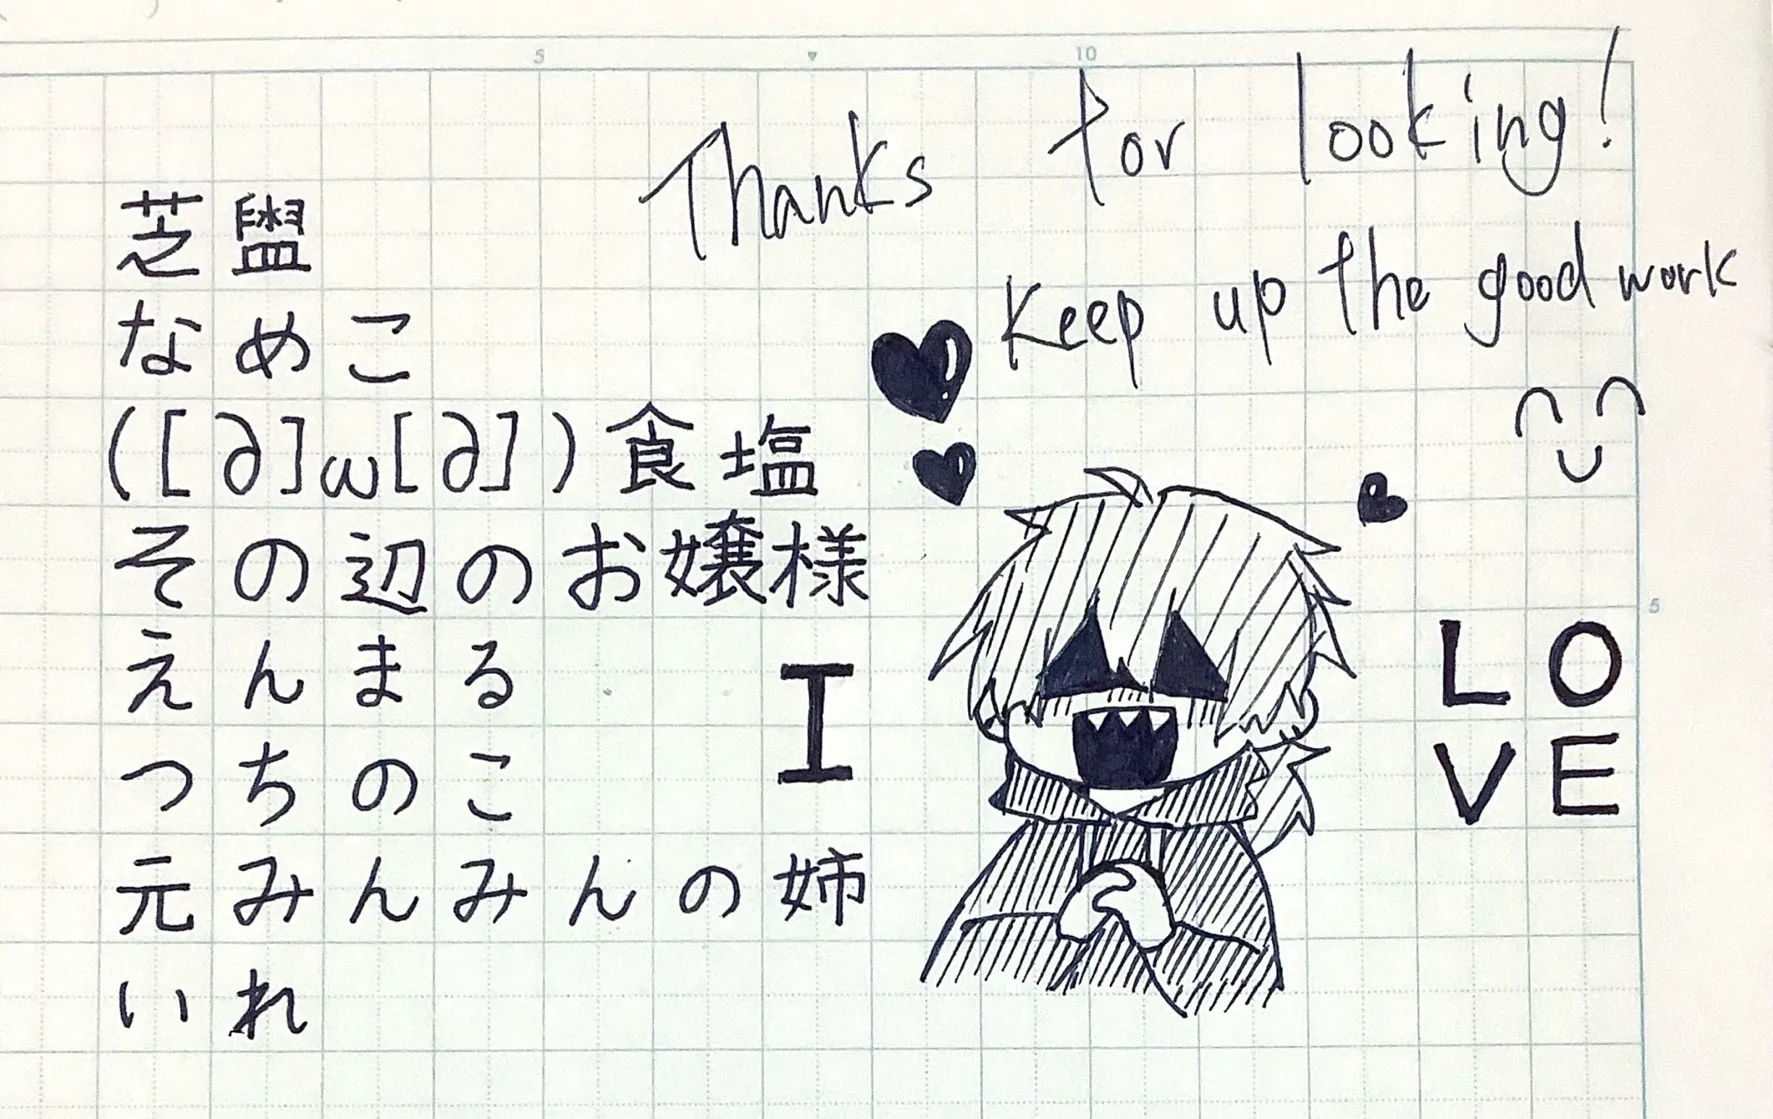 Thanks for looking!
Keep up the good work
芝
なめこ
([∂]ω[∂])食塩
その辺のお嬢様
えんまる
つちのこ
元みんみんの姉
いれ
I
LO
VE
5
10
5